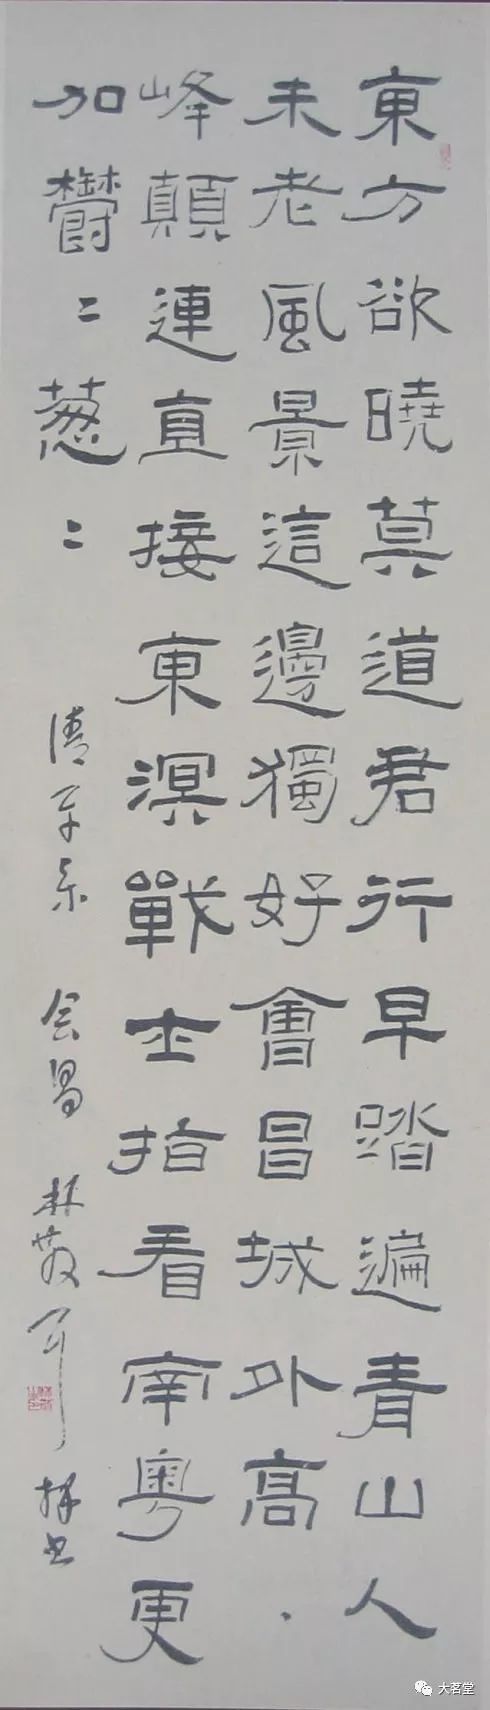 東方欲曉莫道君行早踏遍青山人
未老風景這邊獨好會昌城外高
峰顛連直接東溟戰士指看南粵更
加鬱〻葱〻 清平樂 会昌 林散耳 拜书
大茗堂